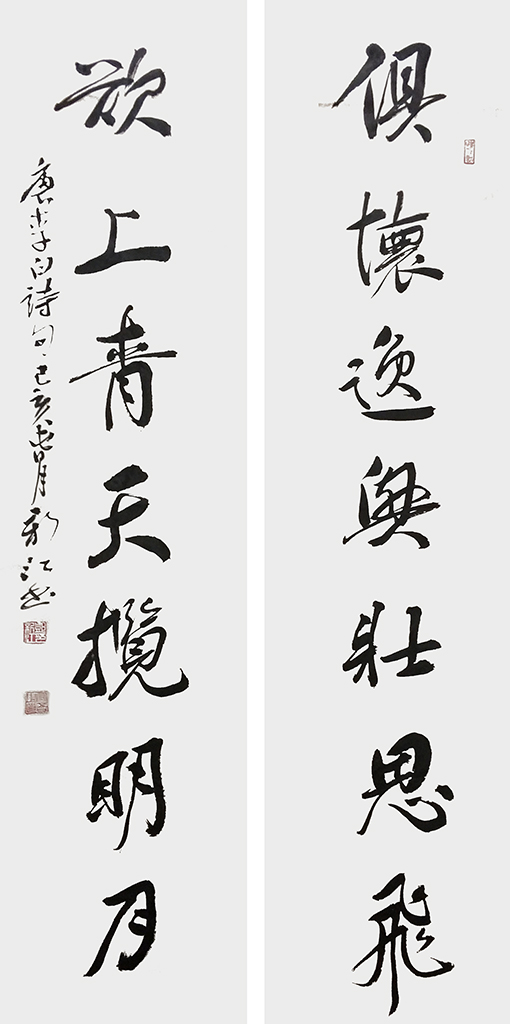 俱懷逸興壯思飛
欲上青天攬明月
唐李白詩句己亥月江书